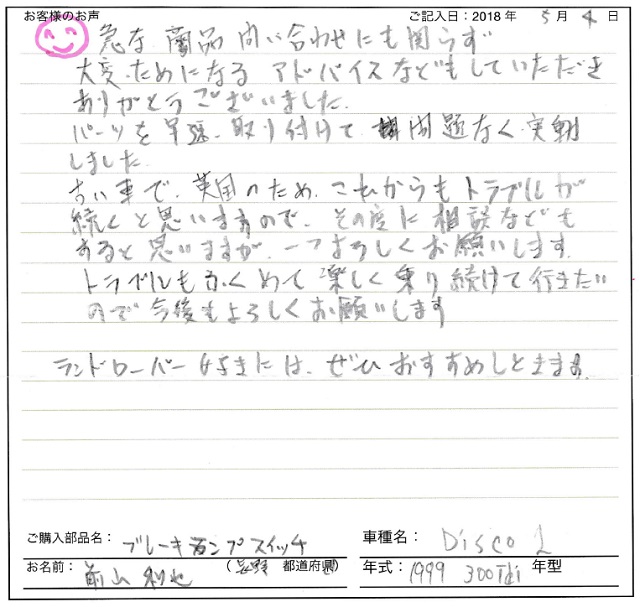 お客様のお声 ご記入日：2018年 5月 4日
急な 商品 問い合わせにも関らず
大変ためになる アドバイスなどもしていただき
ありがとうございました.
パーツを早速、取り付けて 問題なく実動
しました.
古い車で、英国のため、これからもトラブルが
続くと思いますので、その度に相談なども
すると思いますが、一つよろしくお願いします.
トラブルもふくめて楽しく乗り続けて行きたい
ので今後もよろしくお願いします
ランドローバー好きには、ぜひおすすめしときます。
ご購入部品名： ブレーキランプスイッチ 車種名： Disco 1
お名前： 前山 （長野 都道府県） 年式： 1999 300Tdi 年型